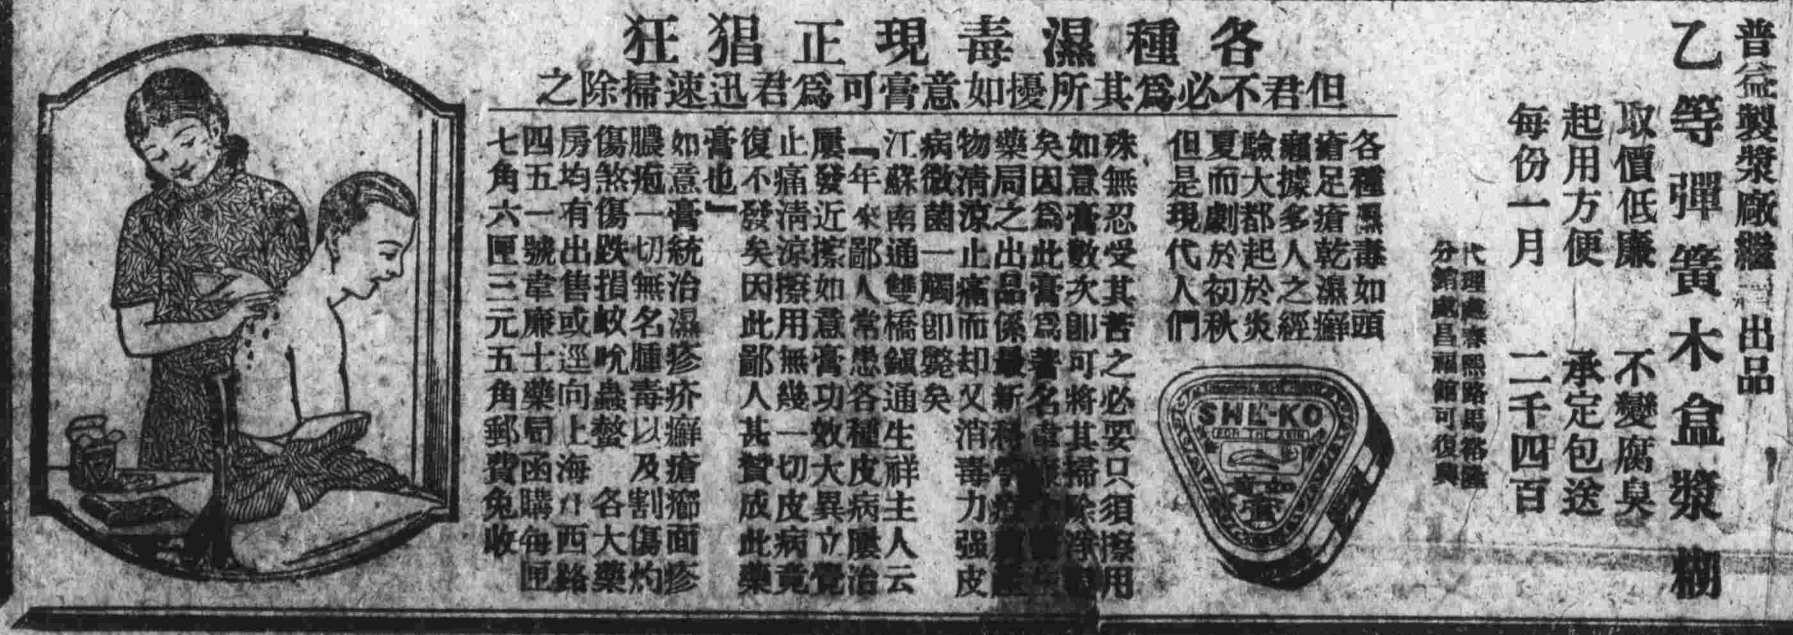 普益製漿廠繼 出品
乙等彈簧木盒漿糊
取價低廉 不變腐臭
起用方便 承定包送
每份一月 二千四百
代理處春熙路馬裕隆
分銷處昌福館可復興
各種濕毒現正猖狂
但君不必爲其所擾如意膏可爲君迅速掃除之
各種濕毒如頭
瘡足瘡乾濕癬
癩據多人之經
驗大都起於炎
夏而劇於初秋
但是現代人們
殊無忍受其苦之必要只須擦用
如意膏數次卽可將其掃除淨
矣因爲此膏爲著名
藥局之出品係最新科學
物清涼止痛而却又消毒力强皮
病微菌一觸卽斃矣
江蘇南通雙橋鎭通生祥主人云
『年來鄙人常患各種皮病屢治
屢發近擦如意膏功效大異立覺
止痛淸涼擦用無幾一切皮病竟
復不發矣因此鄙人甚贊成此藥
膏也』
如意膏統治濕疹疥癬瘡癤面疹
膿疱一切無名腫毒以及割傷灼
傷煞傷跌損蚊吮蟲螫 各大藥
房均有出售或逕向上海 西路
四五一號韋廉士藥局函購每匣
七角六匣三元五角郵費免收
SWE-KO
FOR THE SKIN
膏